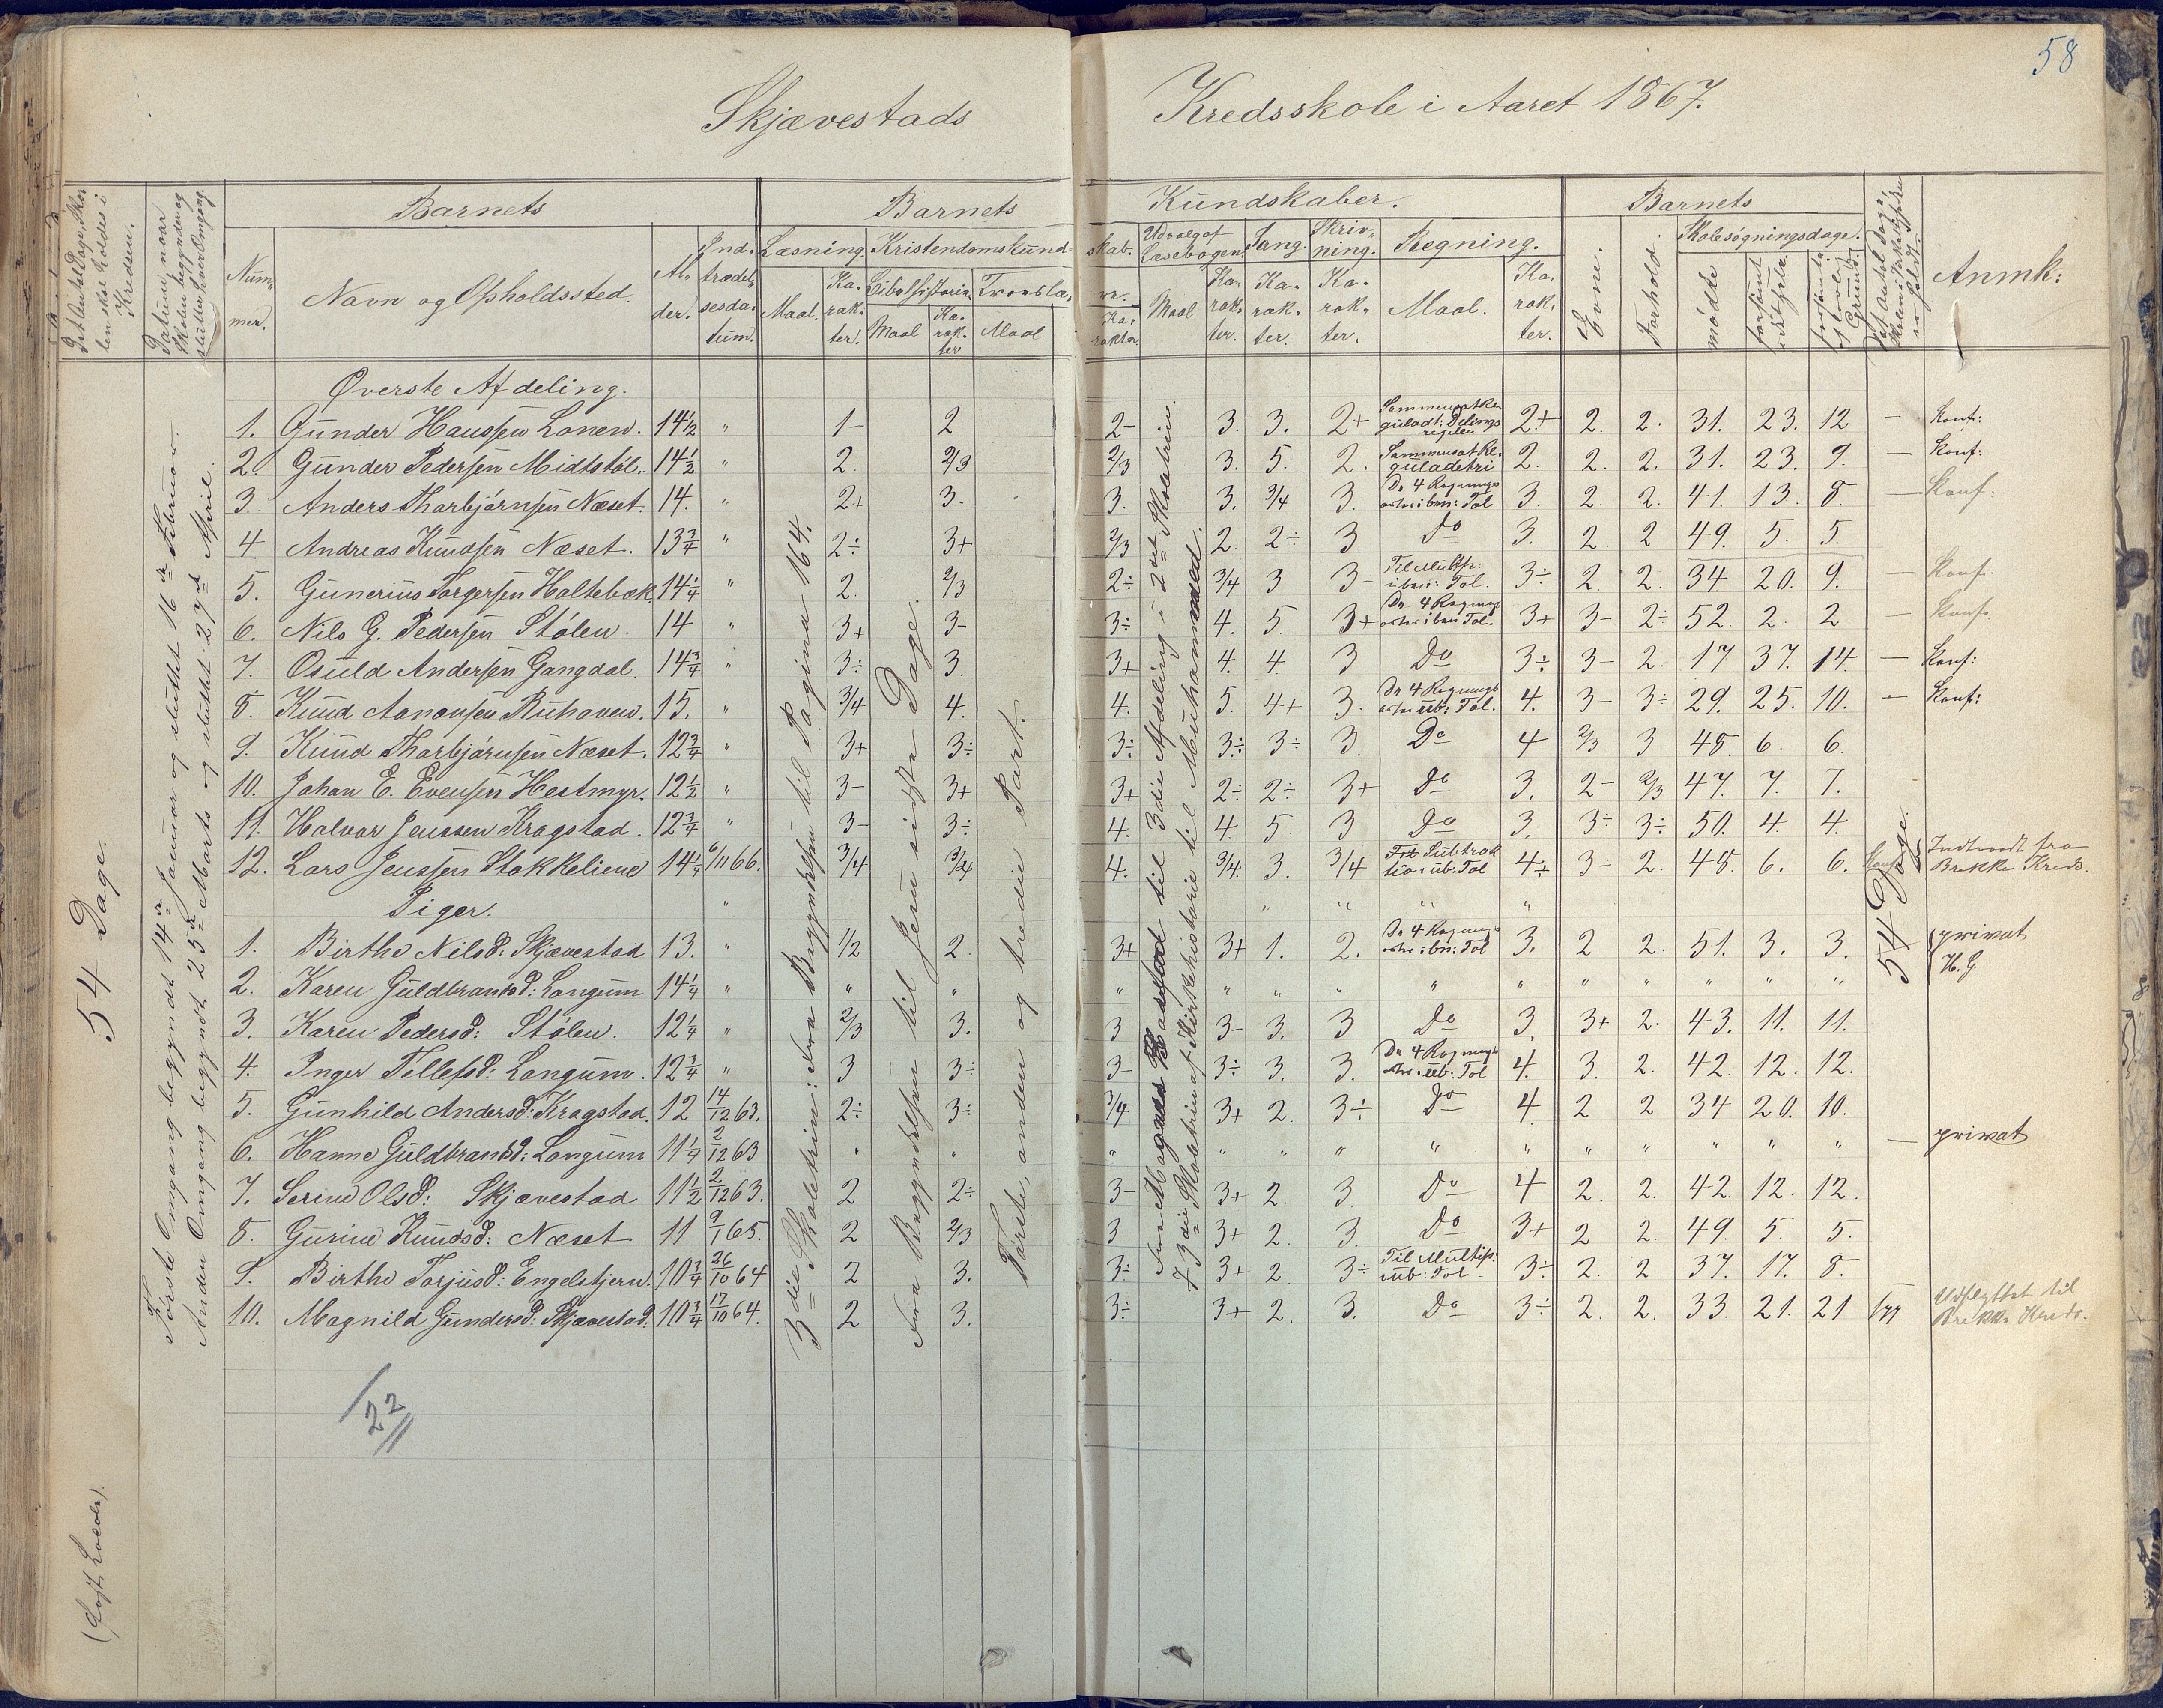 58
Skjævestads Kredsskole i Aaret 1867.
Det Antal Dage, Skolen skal holdes i Kredsen.
Datum, naar Skolen begynder og slutter hver Omgang.
Barnets
Barnets Kundskaber.
Barnets
Nummer.
Navn og Opholdssted.
Alder.
Indtrædelsesdatum.
Læsning.
Kristendomskundskab.
Udvalg af Læsebogen.
Sang.
Skrivning.
Regning.
Evne.
Forhold.
Skolesøgningsdage.
Anmk:
Maal. Karakter. Bibelhistorie. Troeslære.
Maal Karakter Maal Karakter
Maal Karakter. Karakter. Karakter. Maal. Karakter.
mødte forsømt forsømt af lovl. Grund.
54 Dage.
Første Omgang begyndt 14de Januar og sluttet 16de Februar.
Anden Omgang begyndt 25de Marts og sluttet 27de April.
3die Skoletrin: Fra Begyndelsen til Pagina 164.
Fra Begyndelsen til Jesu sidste Dage.
Første, anden og tredie Part.
54 Dage.
Øverste Afdeling.
1. Gunder Hanssen Lonen. 14½ " 1- 2 2- 3. 3. 2+ 2+ 2. 2. 31. 23. 12 — Konf:
2. Gunder Pedersen Midtstøl. 14½ " 2. 2/3 2/3 3. 5. 2. Sammensat Reguladetri 2. 2. 2. 31. 23. 9. — Konf:
3. Anders Tharbjørnsen Næset. 14. " 2+ 3. 3. 3. 3/4 3. De 4 Regningsarter i ben: Tal 3. 2. 2. 41. 13. 8. — Konf:
4. Andreas Knudsen Næset. 13¾ " 2÷ 3+ 2/3 2. 2÷ 3 Do 3. 2. 2 49. 5. 5.
5. Gunerius Torgersen Holtebæk. 14¼ " 2. 2/3 2÷ 3/4 3 3- Til Multip: i ben: Tal. 3÷ 2. 2. 34. 20. 9. — Konf.
6. Nils G. Pedersen Stølen 14 " 3+ 3- 3÷ 4. 5. 3+ De 4 Regningsarter i ben Tal. 3+ 3- 2÷ 52. 2. 2 — Konf.
7. Osuld Andersen Gangdal. 14¾ " 3÷ 3. 3+ 4. 4. 3 Do 3÷ 3- 2. 17 37. 14. — Konf:
8. Knud Aanonsen Ruhaven. 15. " 3/4 4. 4. 5. 4+ 3. De 4 Regningsarter i ub: Tal. 4. 3- 3÷ 29. 25. 10. — Konf:
9. Knud Tharbjørnsen Næset. 12¾ " 3+ 3÷ 3÷ 3÷ 3÷ 3. Do 4 2/3 3 48. 6. 6.
10. Johan E. Evensen Hestmyr. 12½ " 3- 3+ 3+ 2÷ 2÷ 3+ Do 3. 2- 2/3 47. 7. 7.
11. Halvor Jenssen Kragstad. 12¾ " 3- 3÷ 4. 4. 5. 3 Do 3. 3÷ 3÷ 50. 4. 4.
12. Lars Jenssen Stokkeliene 14¼ 6/11 66. 3/4 3/4 4. 3/4. 3. 3/4 i ub: Tal 4÷ 3- 2. 48. 6. 6. Konf. Indtraadt fra Brekke Kreds.
Piger.
1. Birthe Nilsd: Skjævestad 13. " 1/2 2. 3+ 3+ 1. 2. De 4 Regningsarter i ben: Tal 3. 2 2. 51. 3. 3. privat H. G.
2. Karen Guldbrandsd: Langum 14¼ " " " " " " " " " " " " " "
3. Karen Pedersd: Stølen. 12¼ " 2/3 3. 3 3- 3. 3 Do 3. 3+ 2. 43. 11. 11.
4. Inger Tellefsd: Langum. 12¾ " 3 3÷ 3- 3÷ 3. 3. De 4 Regningsarter i ub: Tal 4. 3. 2. 42. 12. 12.
5. Gunhild Andersd: Kragstad. 12 14/12 63. 2÷ 3÷ 3/4 3+ 2. 3÷ Do 4 2 2 34 20. 10.
6. Hanne Guldbrandsd: Langum 11¼ 2/12 63 " " " " " " " " " " " " " — privat
7. Serine Olsd: Skjævestad 11½ 2/12 63. 2 2÷ 3- 3+ 2. 3 Do 4 2. 2. 42. 12. 12.
8. Gurine Knudsd: Næset 11 9/1 65. 2 2/3 3 3+ 2. 3. Do 3+ 2 2. 49. 5. 5.
9. Birthe Torjusd: Engelstjern. 10¾ 26/10 64 2 3. 3÷ 3+ 2. 3÷ Til Multip: i ub: Tal 3÷ 2. 2 37. 17. 8.
10. Magnild Gundersd: Skjævestad. 10¾ 17/10 64. 2 3. 3÷ 3+ 2. 3. Do 3÷ 2. 2. 33. 21. 21 Udflyttet til Brekke Kreds.
22